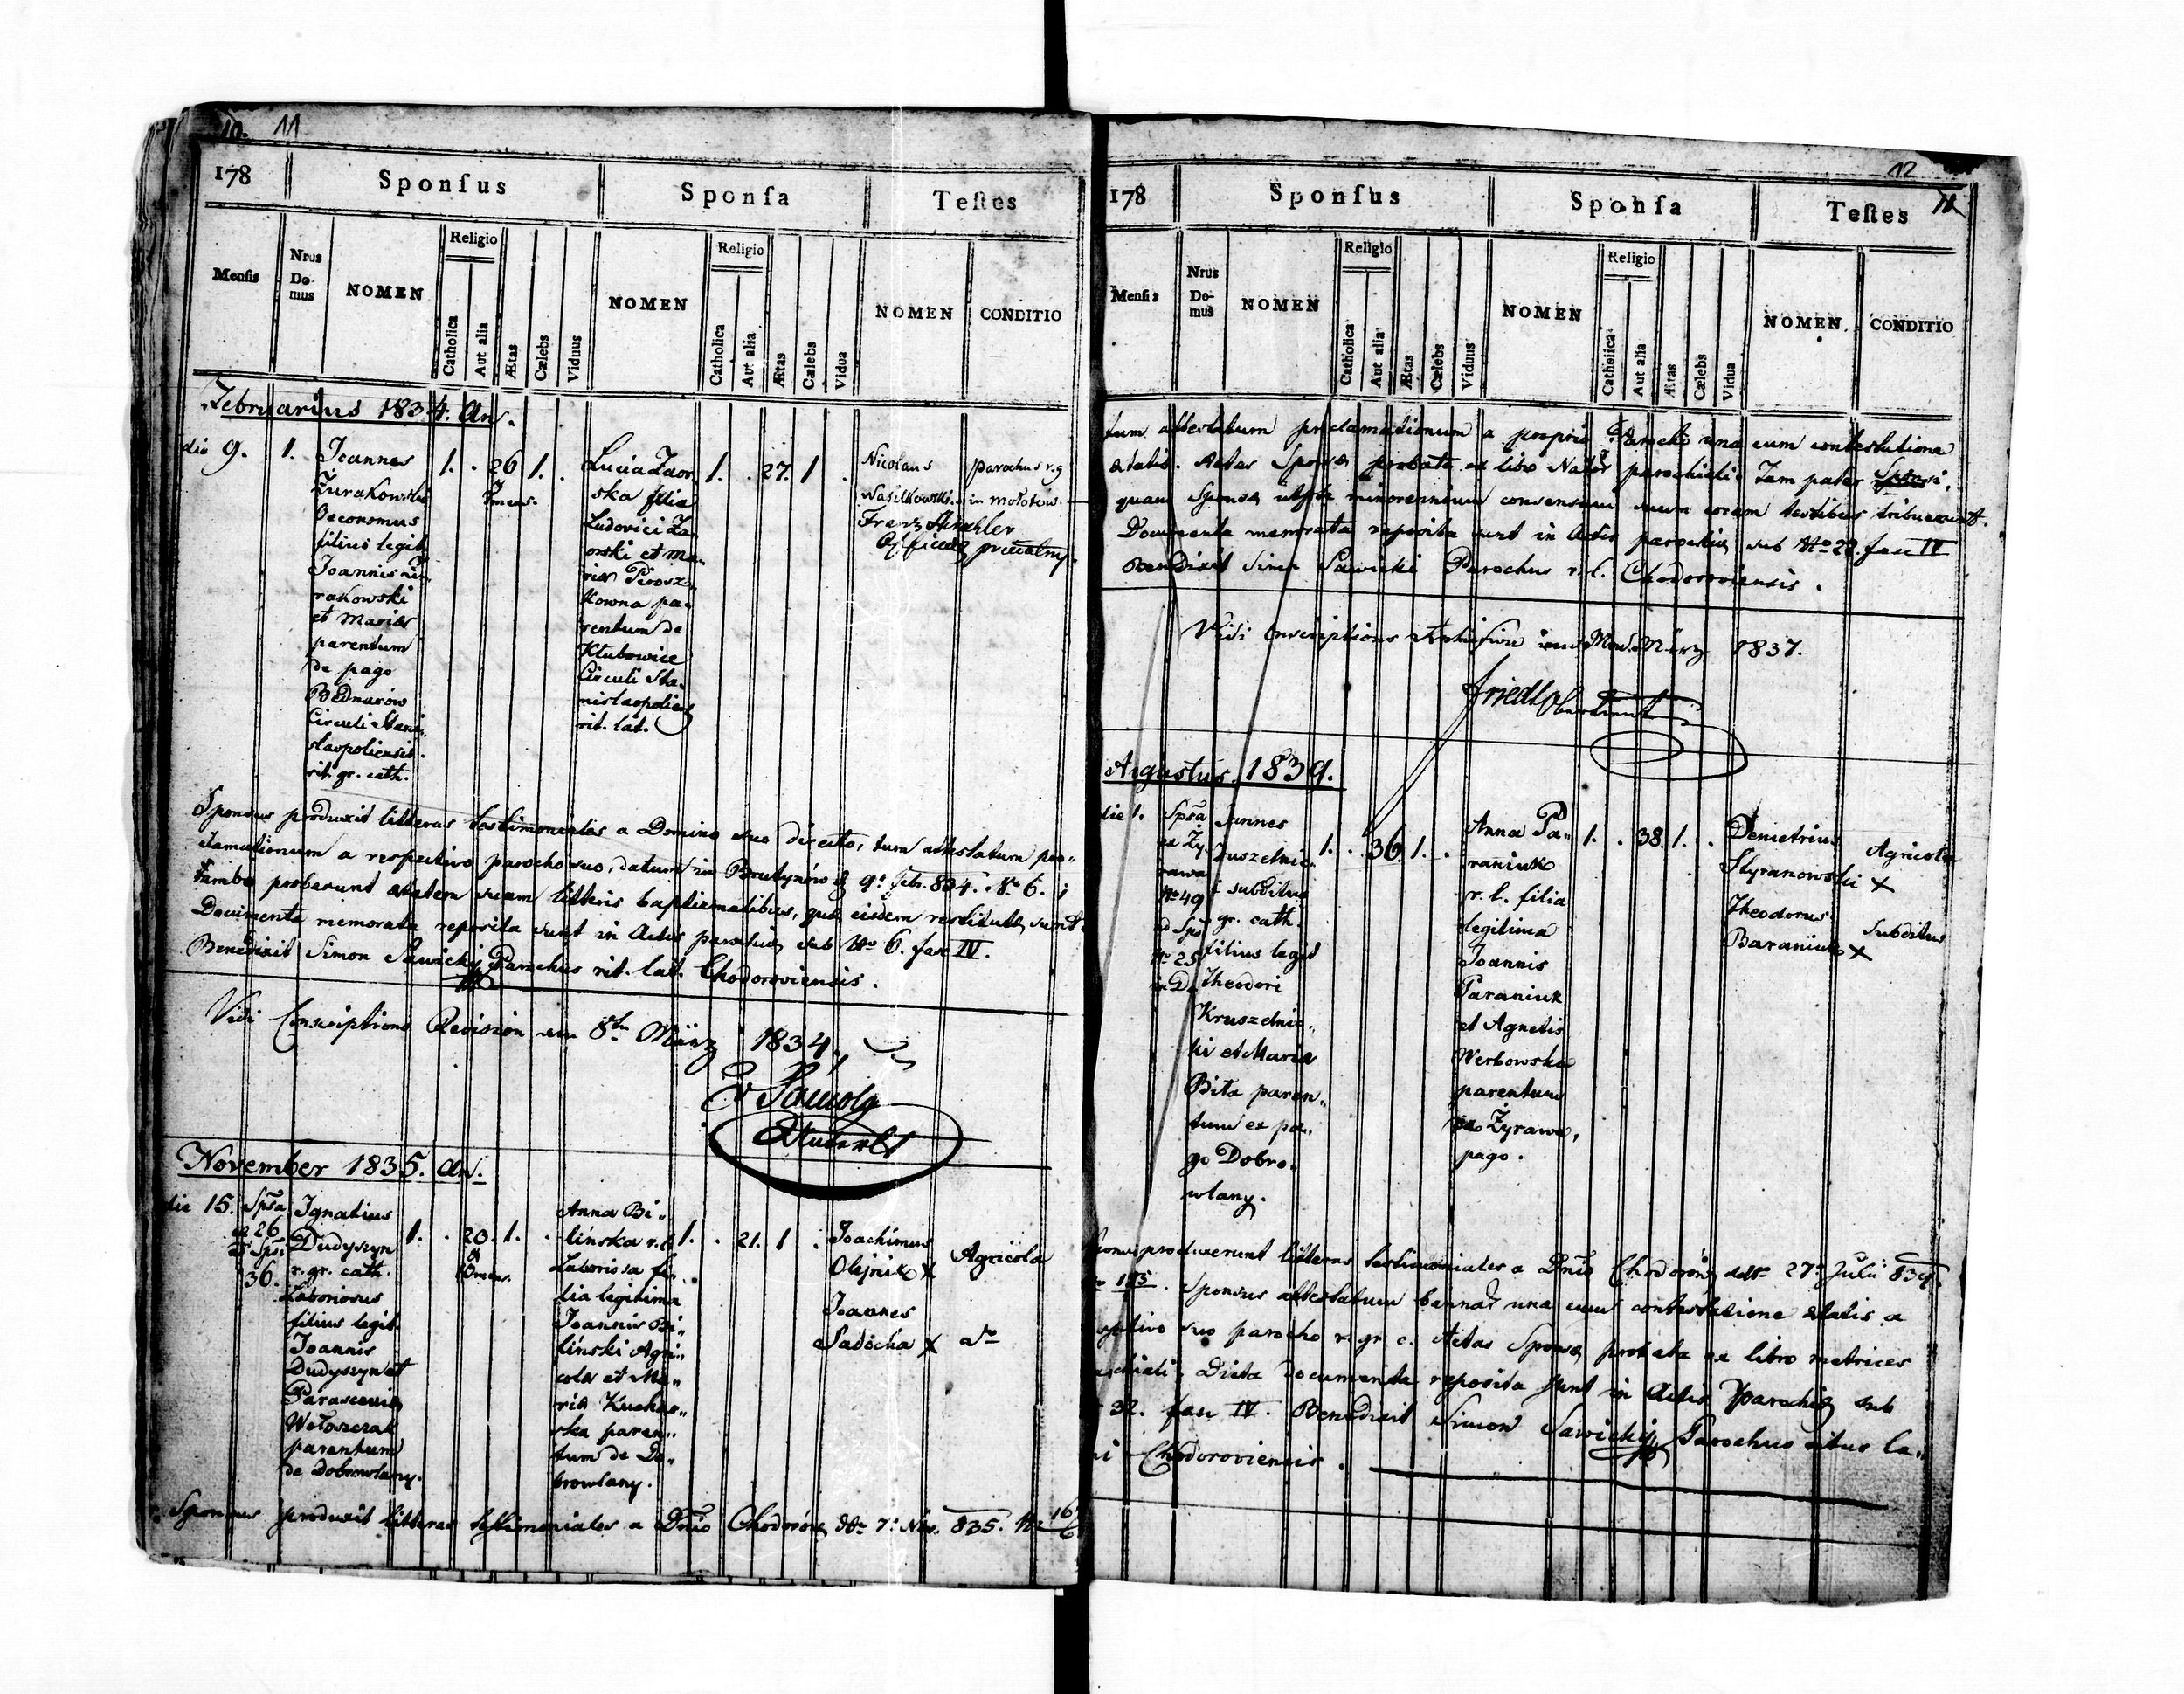 10. 11
178 Sponſus Sponſa Teſtes
Menſis Nrus Do-mus NOMEN Religio Catholica Aut alia Ætas Cælebs Viduus NOMEN Religio Catholica Aut alia Ætas Cælebs Vidua NOMEN CONDITIO
Februarius 1834. An.
die 9. 1.
Joannes
Żurakowski
Oeconomus
filius legit.
Joannis Żu-
rakowski
et Maria
parentum
de pago
Bednarów
Circuli Stani-
slaopoliensis
rit. gr. cath.
1. . 26 1. .
mens.
Lucia Zaor
ska filia
Ludovici Za
orski et Ma-
ria
kowna pa-
rentum de
Kłubowice
Circuli Sta-
nislaopoliens
rit. lat.
1. . 27. 1 .
Nicolaus parochus r. g
Wasilkowski in
Franz
Sponsus produxit litteras testimoniales a Domino suo directo, tum attestatum pro-
clamationum a respectivo parocho suo, datum in 9a Febr. 834. No 6. ;
probarunt aetatem suam litteris baptismalibus, quae eisdem restitutae sunt.
Documenta memorata reposita sunt in Actis parochiae sub No 6. fasc IV.
Benedixit Simon Sawicki Parochus rit. lat. Chodoroviensis.
Vidi Conscriptions Revision am 8ten März 1834
November 1835. An.
die 15. Spsa
ex 26
Sps.
36.
Ignatius
Dudyszyn
r. gr. cath.
Laboriosus
filius legit.
Joannis
Dudyszyn et
Parascevia
Wołoszczak
parentum
de Dobrowlany.
1. . 20. 1. .
10 mens.
Anna Bi-
lińska r. l.
Laboriosa fi-
lia legitima
Joannis Bi-
liński Agri-
cola et Ma-
ria Kuchar-
ska paren-
tum de Do-
browlany.
1. . 21. 1 .
Joachimus
Olejnik x Agricola
Joannes
Sadocha x do
Sponsus produxit litteras testimoniales a Dnio Chodorów ddto 7a Nov. 835. No 16
12
11
178 Sponſus Sponſa Teſtes
Menſis Nrus Do-mus NOMEN Religio Catholica Aut alia Ætas Cælebs Viduus NOMEN Religio Catholica Aut alia Ætas Cælebs Vidua NOMEN CONDITIO
tum attestatum proclamationum a proprio Parocho una cum contestatione
aetatis. Aetas Sponsa probata ex libro Nator parochiali. Tam pater Sponsi,
quam Sponsa utpote minorennium consensum suum coram testibus tribuerunt.
Documenta memorata reposita sunt in Actis parochia sub No 28. fasc IV
Benedixit Simon Sawicki Parochus r. l. Chodoroviensis.
Vidi Conscriptions März 1837.
Friedl
Augustus 1839.
die 1. Spsa
ex Ży-
rawa
No 49
ad Sps
No 25
in Do
Joannes
Kruszelnic-
ki subditus
gr. cath.
filius legit
Theodori
Kruszelnic-
ki et Maria
Bita paren-
tum ex pa-
go Dobro-
wlany.
1. . 36. 1. .
Anna Pa-
raniuk
r. l. filia
legitima
Joannis
Paraniuk
et Agnetis
Werbowska
parentum
ex Żyrawa,
pago.
1. . 38. 1. .
Demetrius
Styranowski x Agricola
Theodorus
Baraniuk x Subditus
produxerunt litteras testimoniales a Dnio Chodorów ddto 27a Julii 839.
Sponsus attestatum una cum contestatione aetatis a
suo parocho r. gr. c. Aetas Sponsa probata ex libro metrices
Dicta documenta reposita sunt in Actis Parochia sub
32. fasc IV. Benedixit Simon Sawicki Parochus ritus la-
ni Chodoroviensis.